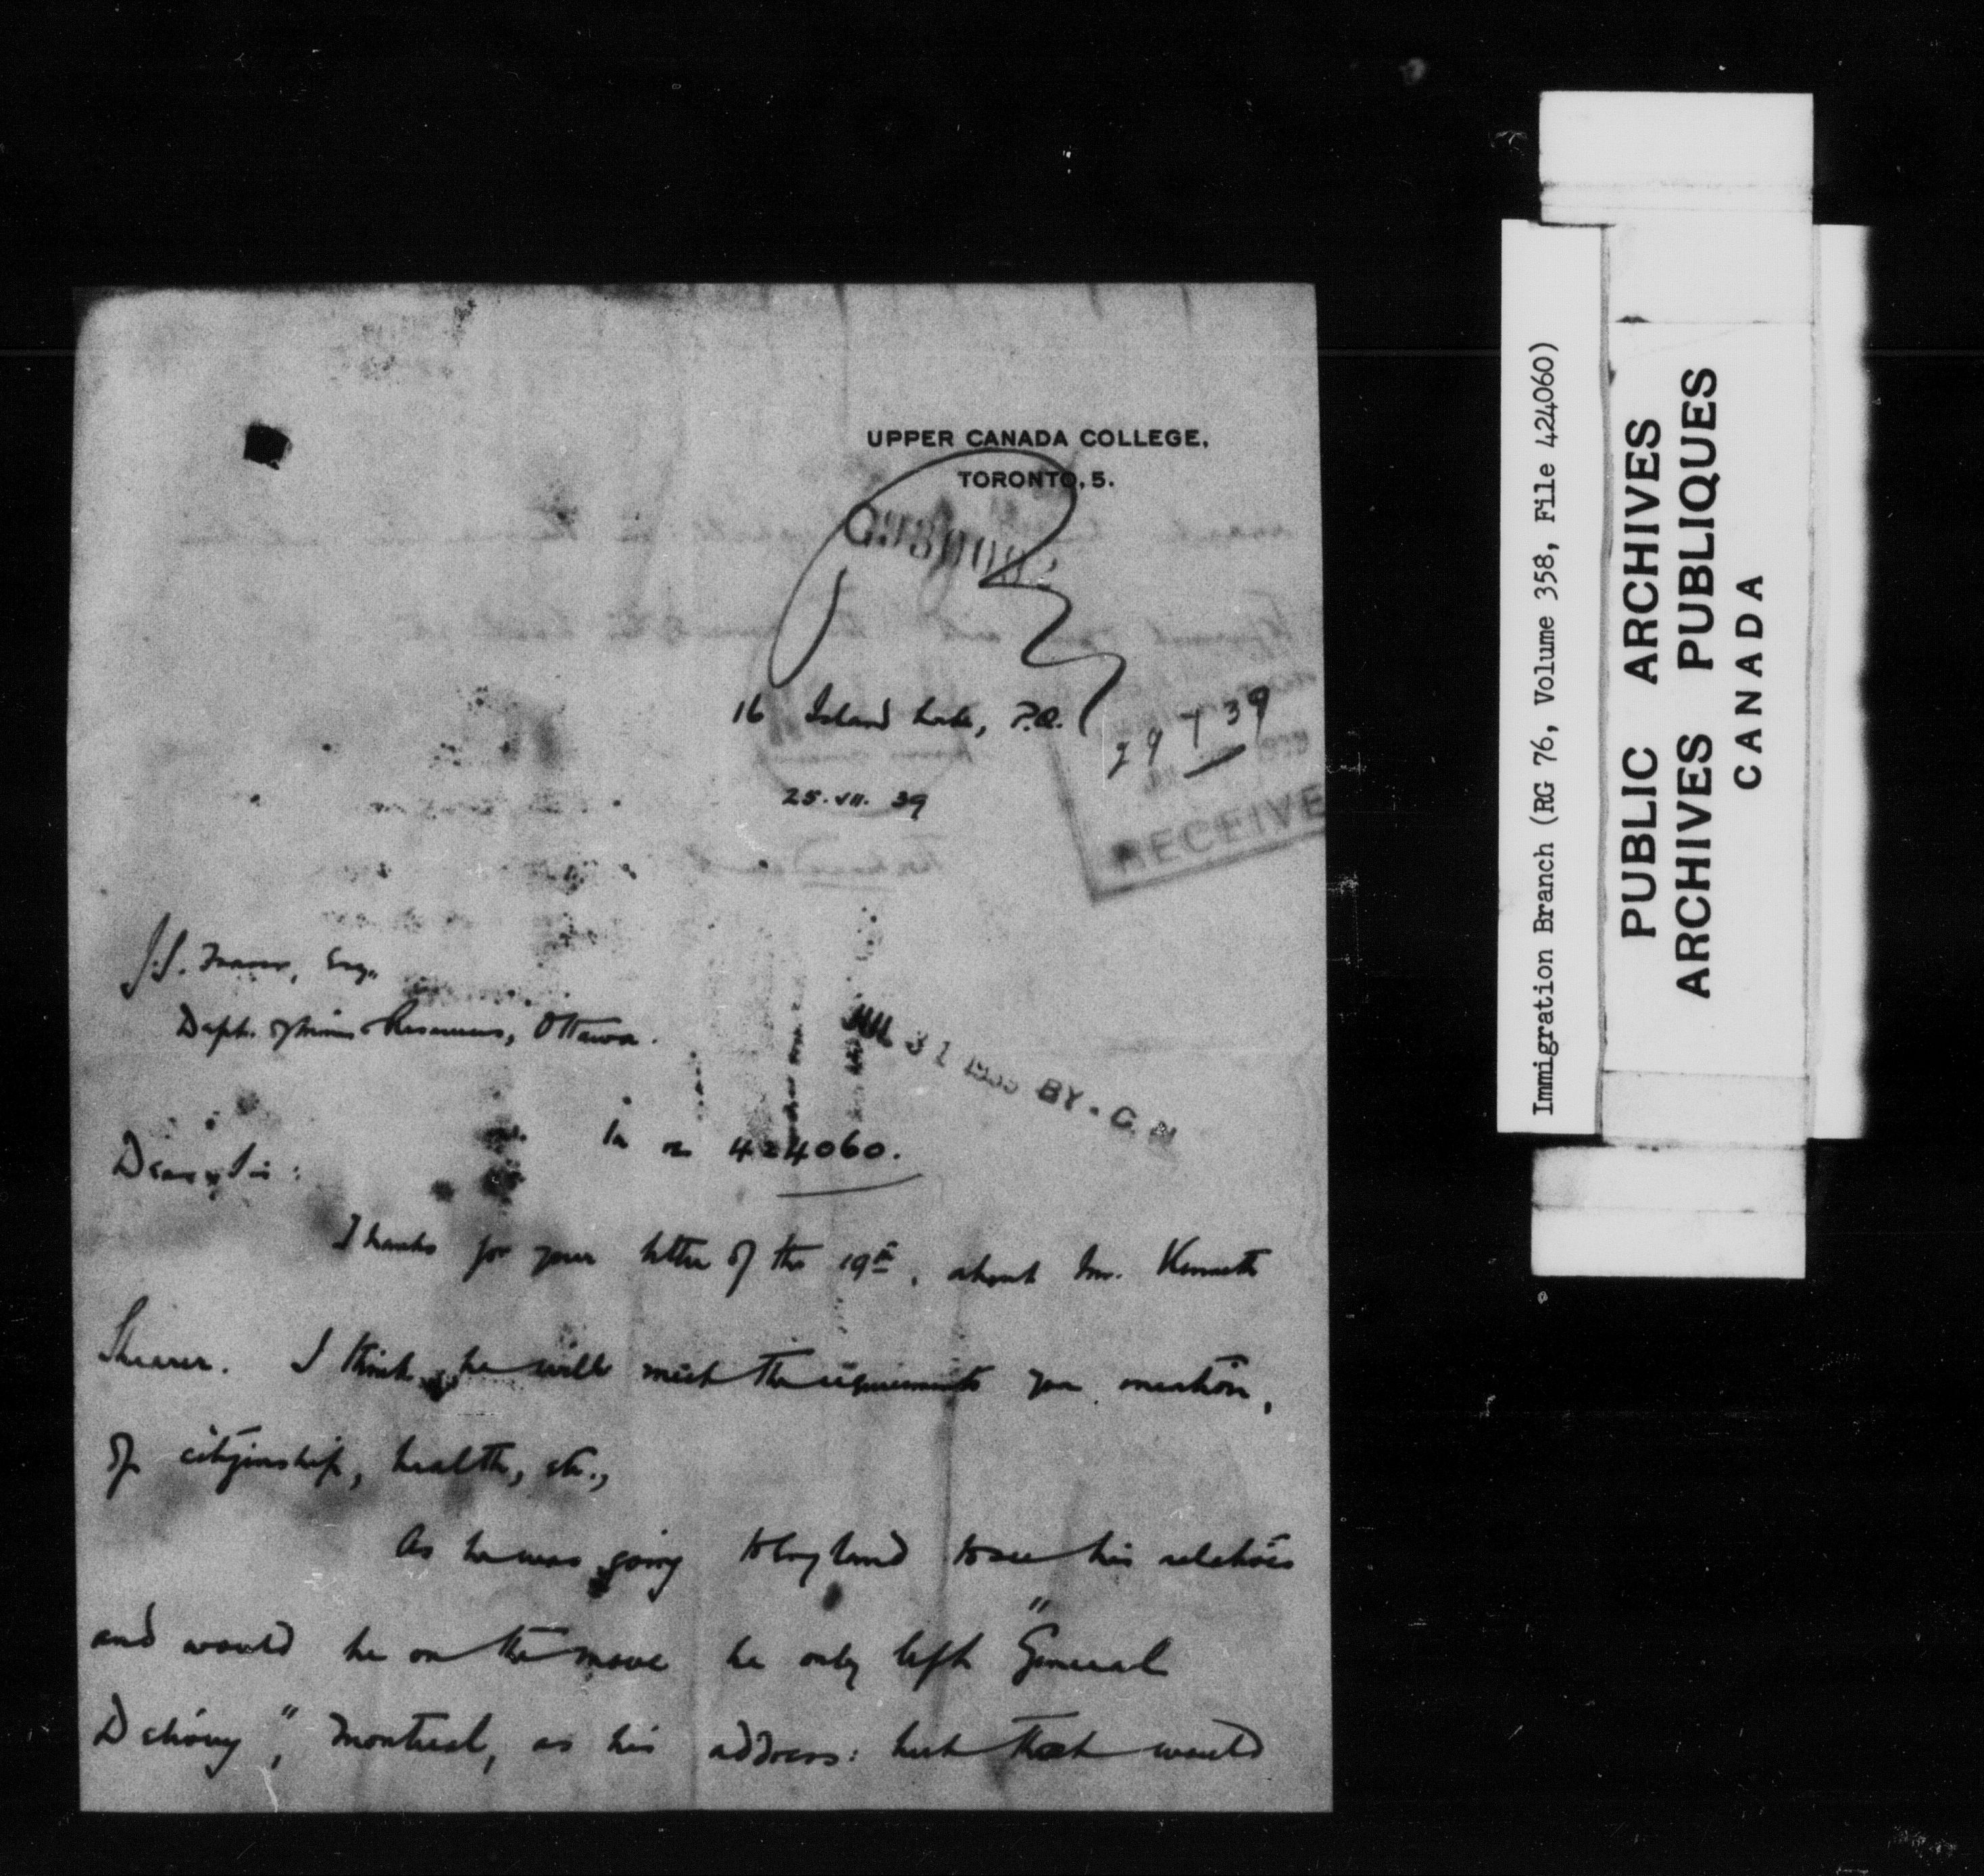 UPPER CANADA COLLEGE,
TORONTO, 5.
16 Island Lake, P.Q.
29 7 39
25. VII. 39
RECEIVE
J.S. Fraser, Esq.
Dept. of Mines & Resources, Ottawa.
JUL 31 1939 BY. C.
In re 424060.
Dear Sir:
Thanks for your letter of the 19th, about Mr. Kenneth
Shearer. I think he will meet the requirements you mention,
of citizenship, health, etc.,
As he was going to England to see his relatives
and would be on the move he only left "General
Delivery", Montreal, as his address: but that would
Immigration Branch (RG 76, Volume 358, File 424060)
PUBLIC ARCHIVES
ARCHIVES PUBLIQUES
CANADA